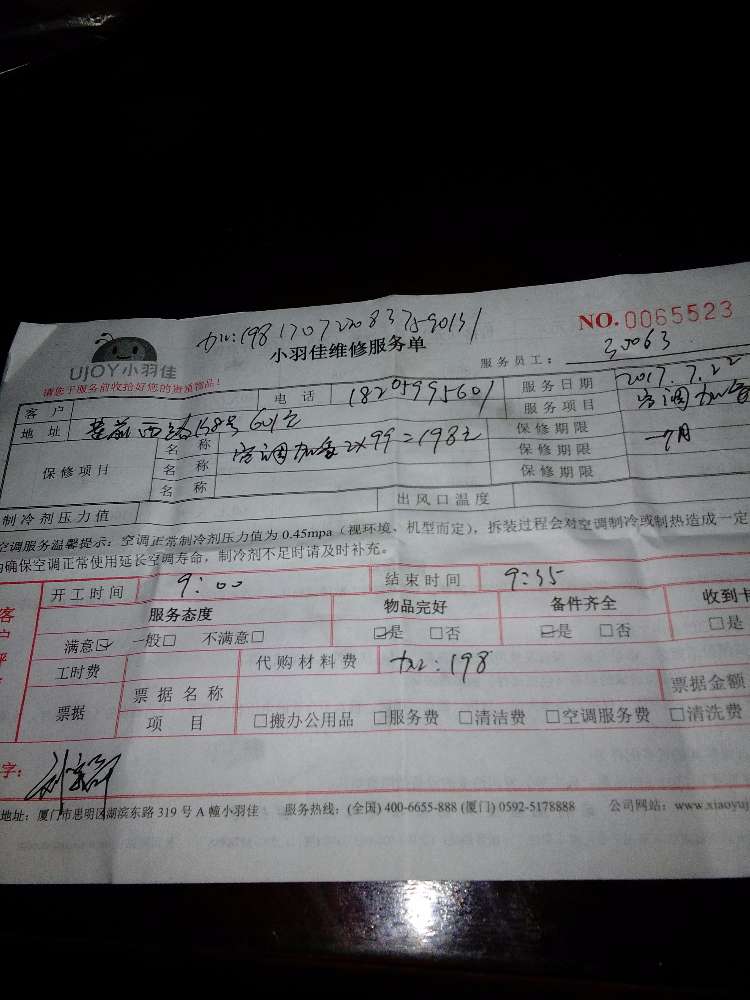 1981707220837590131
NO.0065523
UJOY小羽佳
小羽佳维修服务单
服务员工： 30063
请您于服务前收拾好您的贵重物品！
客户 电话 18205995601 服务日期 2017.7.22
地址 莲前西路158号601 服务项目 空调加氟
保修项目 名称 空调加氟2X99=198元 保修期限
名称 保修期限 一个月
名称 保修期限
制冷剂压力值 出风口温度
空调服务温馨提示：空调正常制冷剂压力值为 0.45mpa（视环境、机型而定），拆装过程会对空调制冷或制热造成一定
为确保空调正常使用延长空调寿命，制冷剂不足时请及时补充。
开工时间 9:00 结束时间 9:35
服务态度 物品完好 备件齐全 收到卡
满意☑ 一般□ 不满意□ ☑是 □否 ☑是 □否 □是
工时费 代购材料费 198
票据 票据名称 票据金额
项目 □搬办公用品 □服务费 □清洁费 □空调服务费 □清洗费
字：
地址：厦门市思明区湖滨东路 319 号 A 幢小羽佳 服务热线：(全国) 400-6655-888 (厦门) 0592-5178888 公司网站：www.xiaoyuj